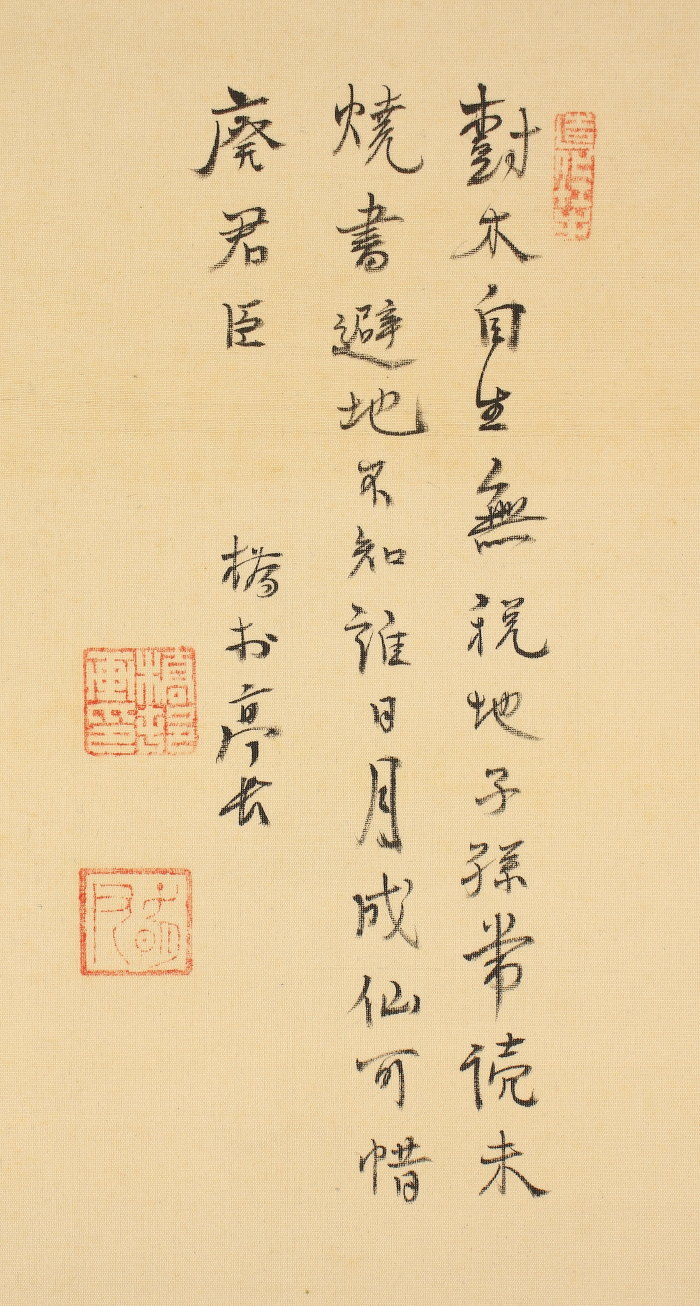 樹木自生無税地子孫常読未
燒書避地不知誰日月成仙可惜
廢君臣
橋村亭長